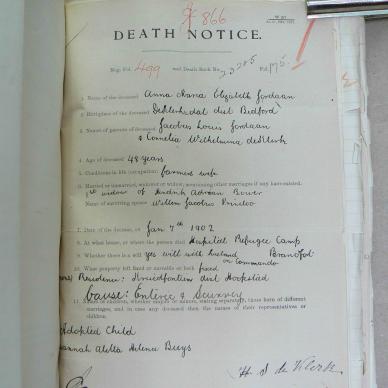 866
DEATH NOTICE.
Reg. Fol. 499 and Death Book No. 23205 Fol. 175.
1. Name of the deceased Anna Maria Elizabeth Jordaan
2. Birthplace of the deceased deKlerksdal dist Bedford
3. Names of parents of deceased Jacobus Louis Jordaan
& Cornelia Wilhelmina deKlerk
4. Age of deceased 48 years
5. Conditions in life (occupation) farmers wife
6. Married or unmarried, widower or widow, mentioning other marriages if any have existed.
1st widow of Hendrik Adriaan Bouwer
Name of surviving spouse Willem Jacobus Prinsloo
7. Date of the decease, on Jan 7th 1902
8. At what house, or where the person died Hospital Refugee Camp
9. Whether there is a will yes will with husband Brandfort
on Commando
10. What property left fixed or movable or both fixed
Residence: dist Hoopstad
Cause: Enteric & Scurvy
11.
marriages, and in case any deceased then the names of their representatives or
children.
Adopted Child
Aletta Helena Buys
H. S. de Klerk